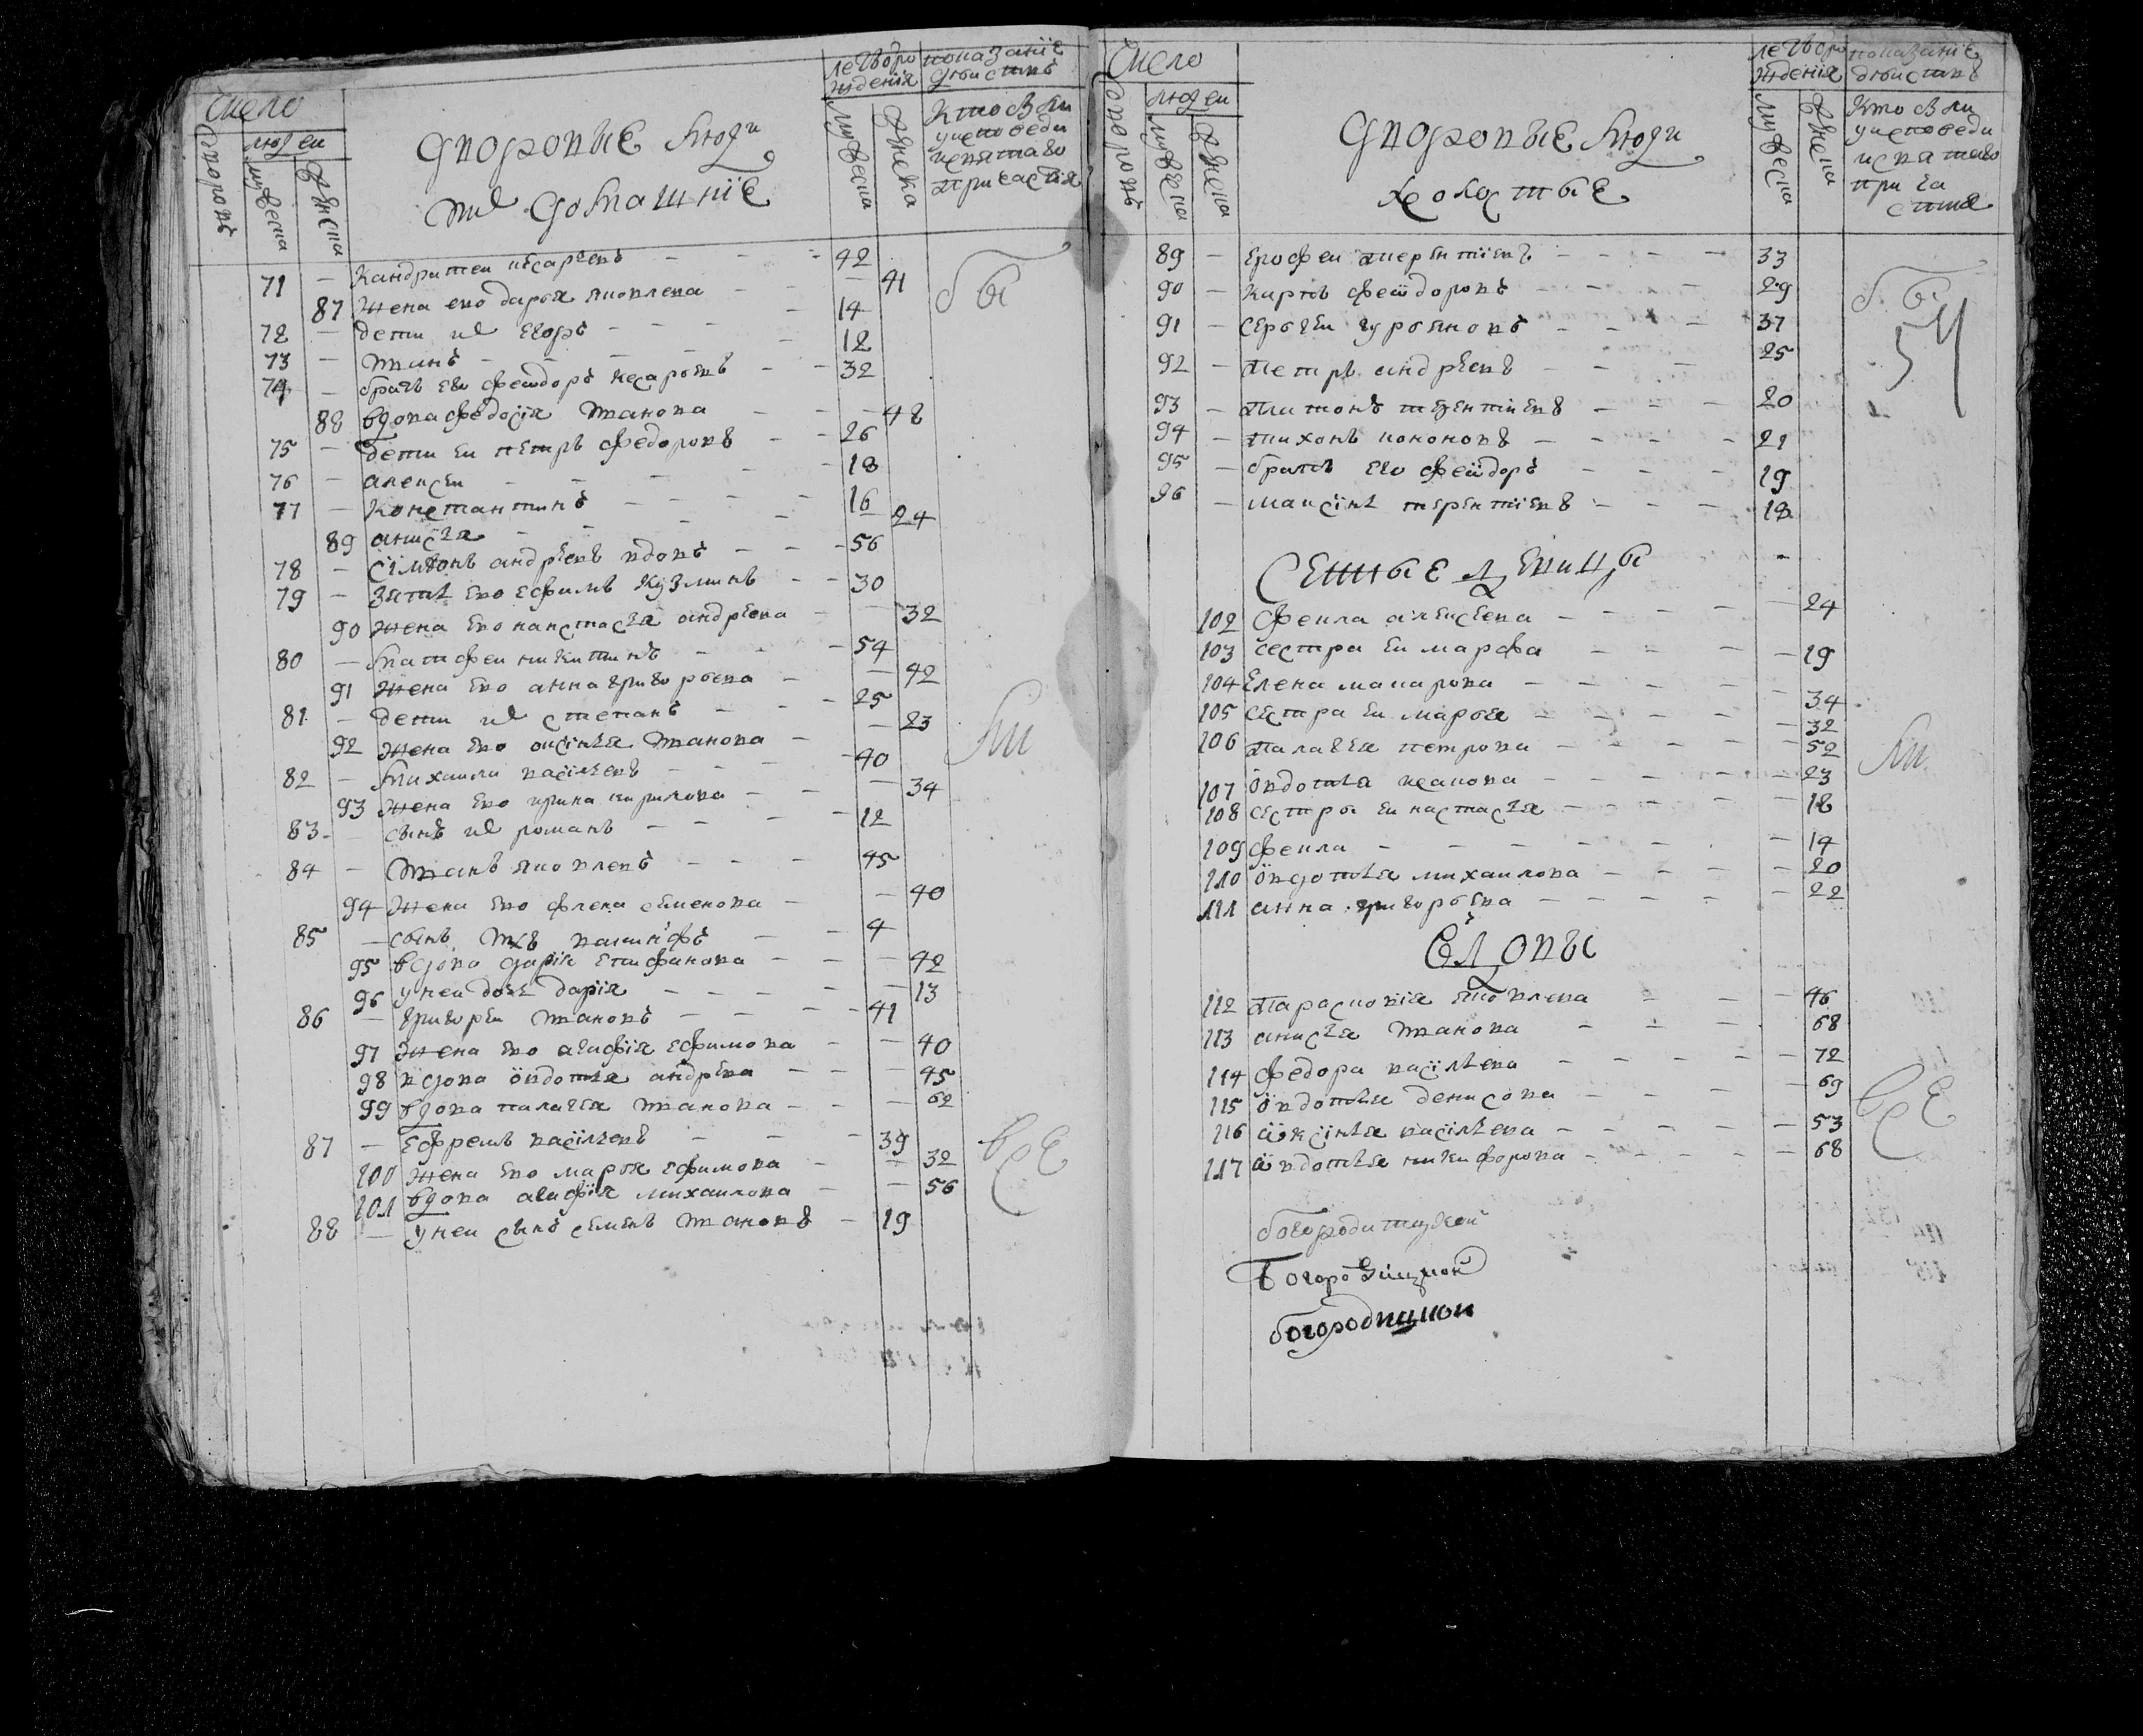 Число
дворовъ
людеи
мужеска
женска
дворовые люди
и их домашние
летъ от рождения
мужеска
женска
показание действъ
Кто были
у исповеди
и святаго
причастия
71 — Кандратеи исаревъ — 42
87 жена ево дарья яковлева — 41
72 — дети их егоръ — 14
73 — иванъ — 12
74 — братъ ево феодоръ исаревъ — 32
88 вдова федосiя иванова — 48
75 — дети еи петръ федоровъ — 26
76 — алексеи — 18
77 — Константинъ — 16
89 анисья — 24
78 — симионъ андреевъ вдовъ — 56
79 — зять ево ефимъ кузминъ — 30
90 жена ево настасья андреева — 32
80 — матфеи никитинъ — 54
91 жена ево анна григорьева — 42
81 — дети их степанъ — 25
92 жена ево аксинья иванова — 23
82 — михаила васильевъ — 40
93 жена ево ирина кирилова — 34
83 — сынъ их романъ — 12
84 — иванъ яковлевъ — 45
94 жена ево елена семенова — 40
85 — сынъ их — 4
95 вдова дарiя епифанова — 42
96 у неи дочь дарiя — 13
86 — григореи ивановъ — 41
97 жена ево агафiя ефимова — 40
98 вдова овдотья андреева — 45
99 вдова палагея иванова — 62
87 — ефремъ васильевъ — 39
100 жена ево марья ефимова — 32
101 вдова агафiя михаилова — 56
88 — у неи сынъ семенъ ивановъ — 19
бы
ли
все
Число
дворовъ
людеи
мужеска
женска
дворовые люди
холостые
летъ от рождения
мужеска
женска
показание действъ
Кто были
у исповеди
и святаго
причастия
89 — ерофеи терентiевъ — 33
90 — карпъ феодоровъ — 29
91 — сергеи гурьяновъ — 37
92 — петръ андреевъ — 25
93 — платонъ терентиевъ — 20
94 — тихонъ кононовъ — 21
95 — братъ ево феодоръ — 19
96 — максiмъ терентiевъ — 18
Сенные девицы
102 фекла алексеева — 24
103 сестра еи марфа — 19
104 Елена макарова — 34
105 сестра еи марья — 32
106 палагея петрова — 52
107 овдотья исакова — 23
108 сестры еи настасья — 18
109 фекла — 14
110 овдотья михаилова — 20
111 анна григорьева — 22
Вдовы
112 парасковiя яковлева — 46
113 анисья иванова — 68
114 федора васильева — 72
115 овдотья денисова — 69
116 аксiнья васильева — 53
117 авдотья никифорова — 68
бы
54
ли
все
богородицкои
Богородицкой
богородицкои